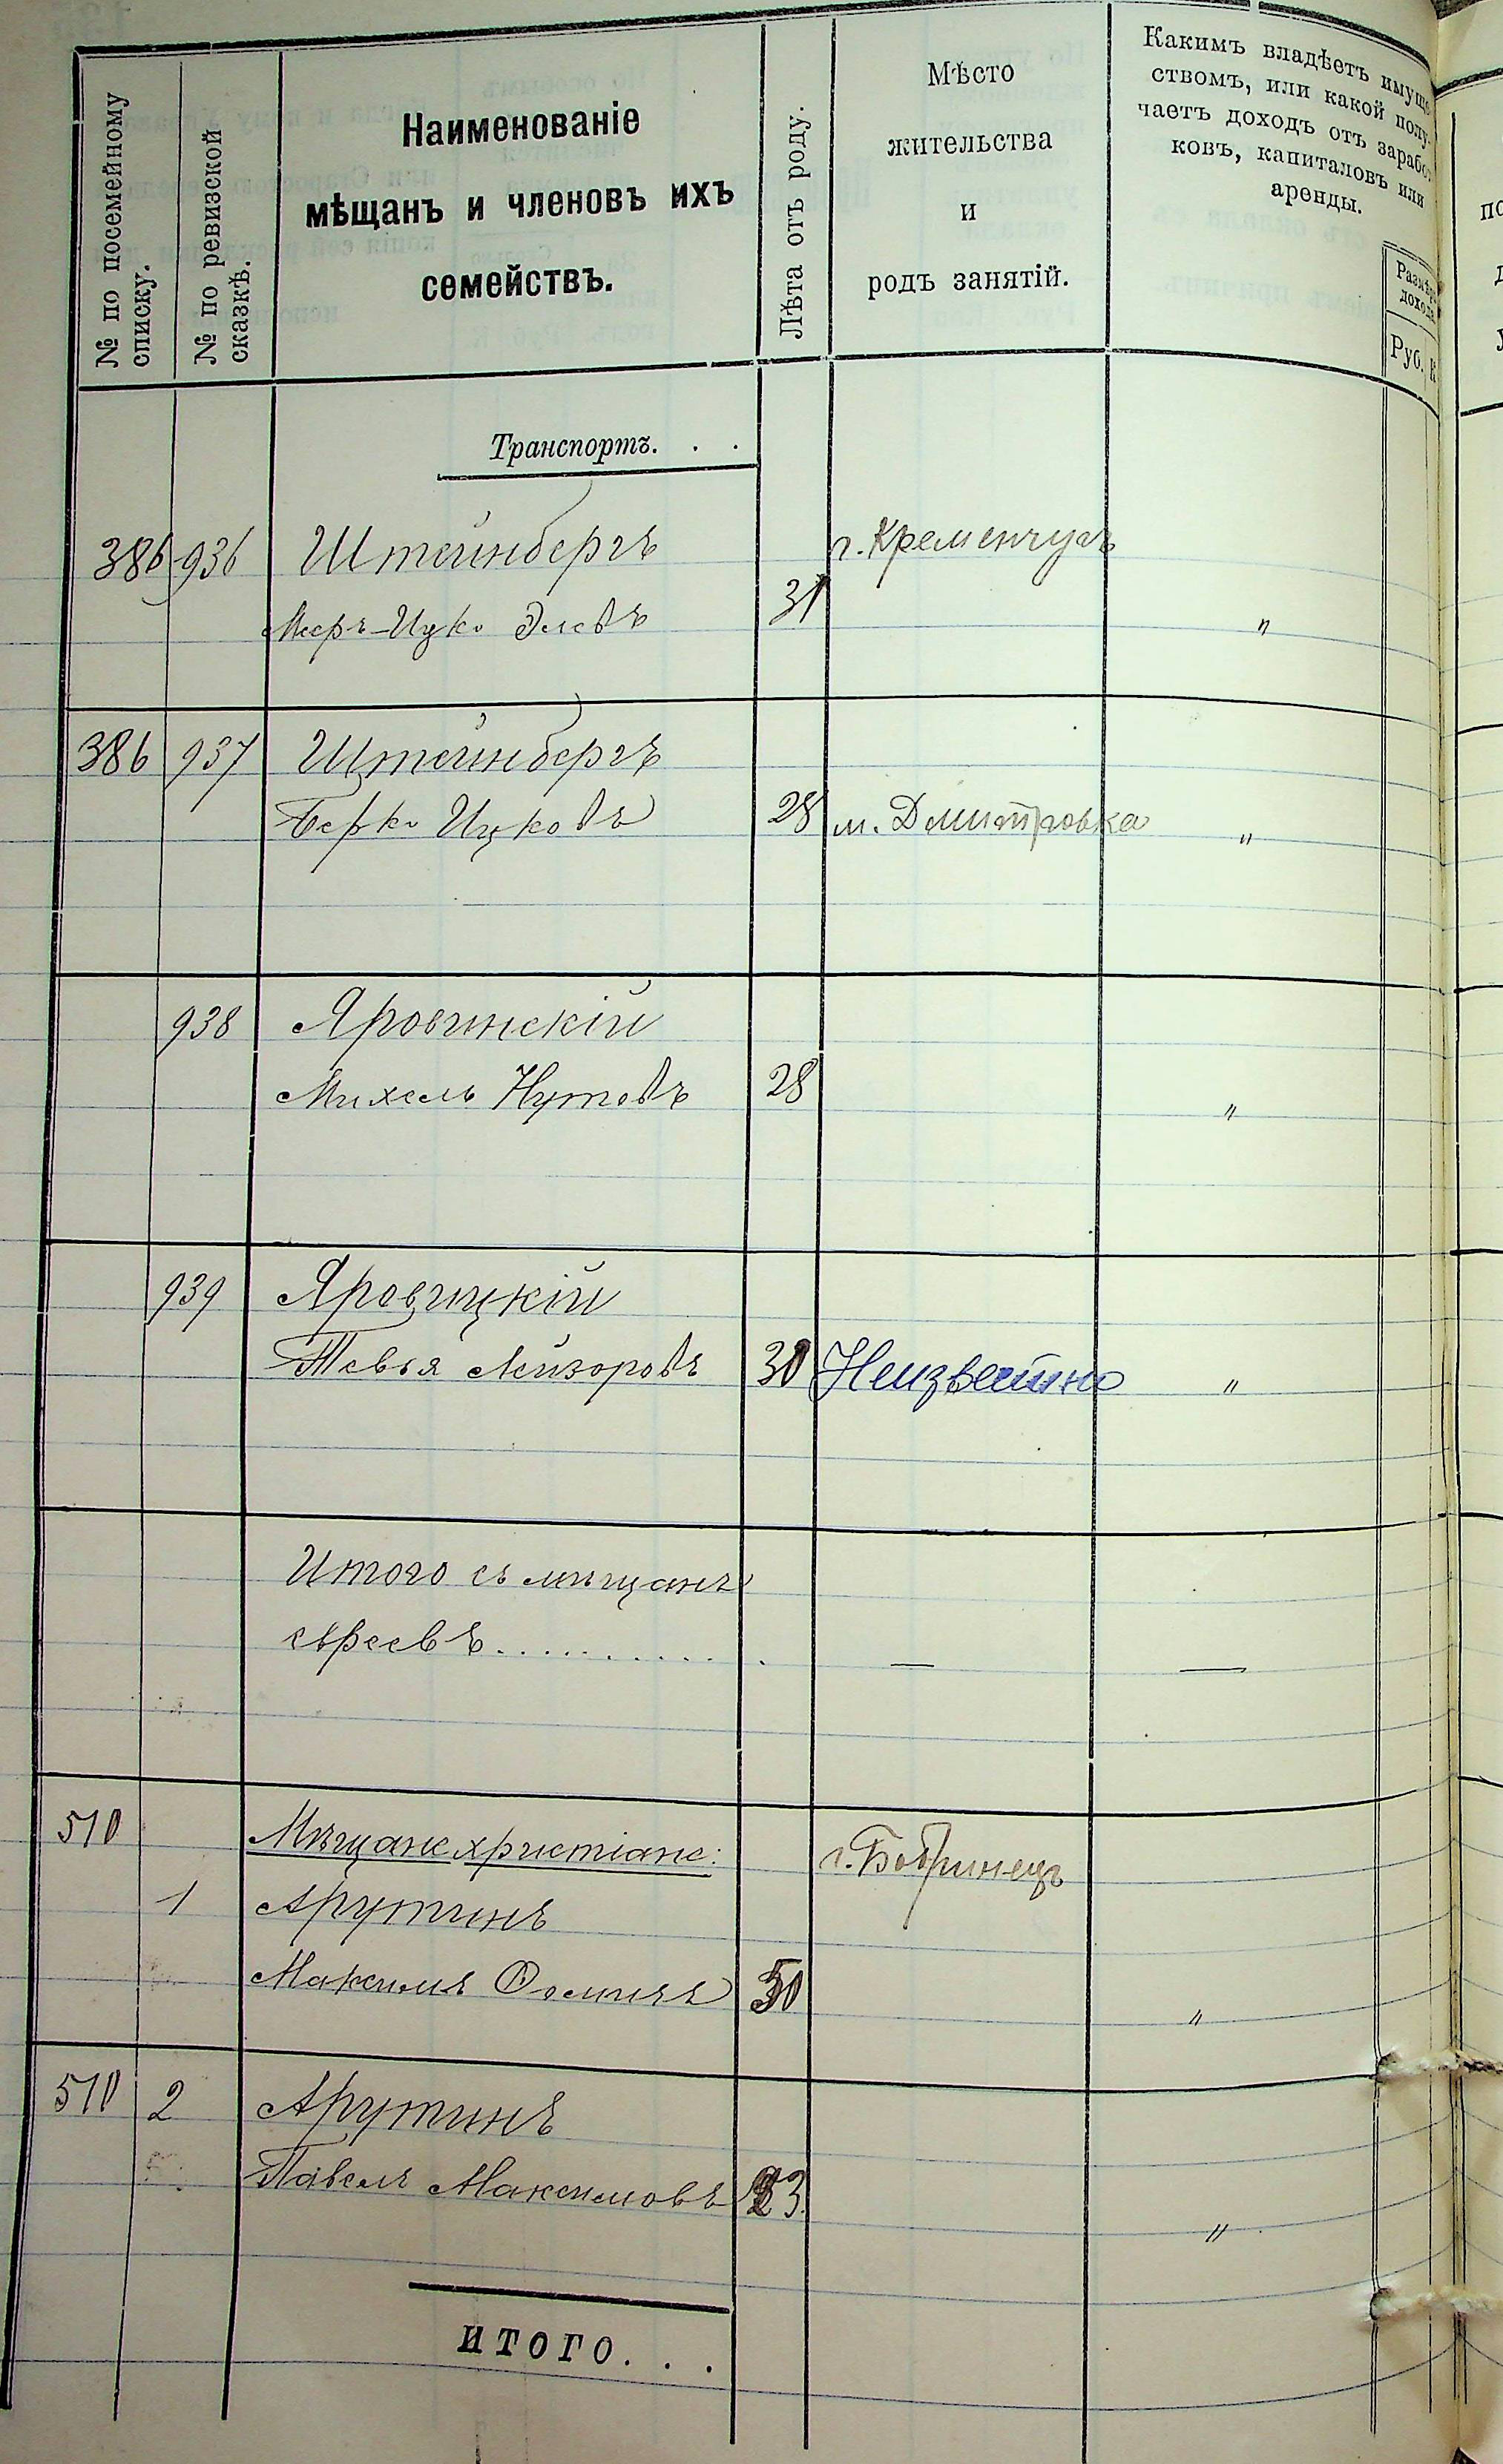 № по посемейному
списку.
№ по ревизской
сказкѣ.
Наименованіе
мѣщанъ и членовъ ихъ
семействъ.
Лѣта отъ роду.
Мѣсто
жительства
и
родъ занятій.
Какимъ владѣетъ имуще
ствомъ, или какой полу-
чаетъ доходъ отъ заработ
ковъ, капиталовъ или
аренды.
Размѣръ
дохода
Руб. К
Транспортъ. . .
386 936 Штейнбергъ г. Кременчугъ
Меръ-Ицко 31 "
386 937 Штейнбергъ
Берко Ицковъ 28 м. Дмитровка "
938 Яровинскій
Михель Нутовъ 28 "
939 Яровицкій
Тевья Лейзоровъ 30 Неизвестно "
Итого съ мѣщанъ
евреевъ . . . . . . . . . . — —
510 Мѣщане христіане: г. Бобринецъ
1 Арутинъ
Максимъ Фоминъ 50 "
510 2 Арутинъ
Павелъ Максимовъ 23. "
ИТОГО. . .